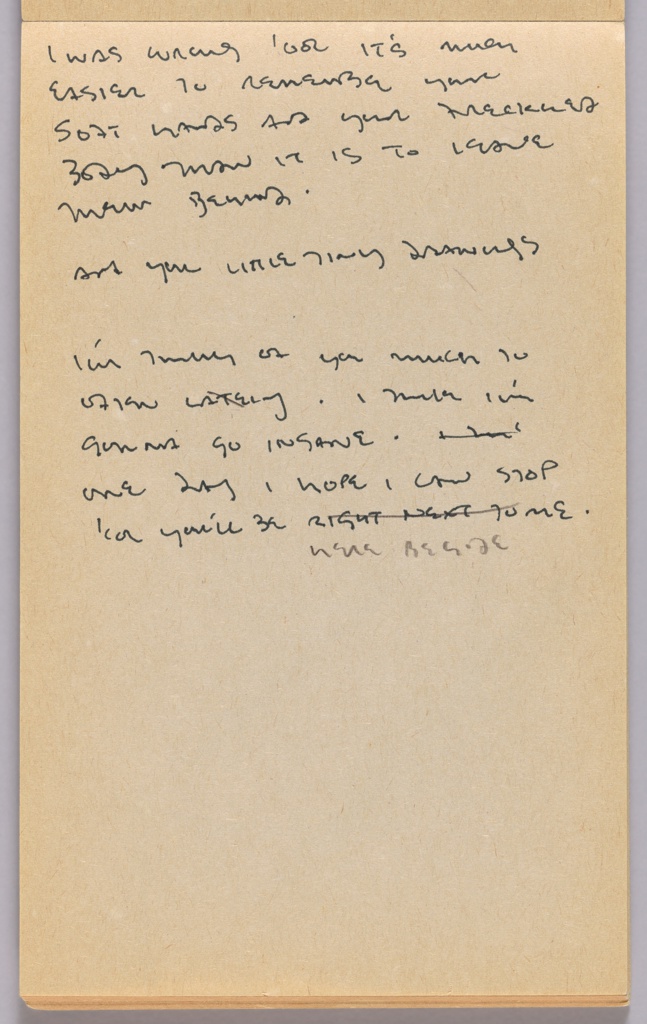 I was wrong 'cos it's much
easier to remember your
soft hands and your freckled
body than it is to leave
them behind.
and your little tiny drawings
I'm thinking of you much to
often lately. I think I'm
gonna go insane.
one day I hope I can stop
'cos you'll be right next to me.
here beside